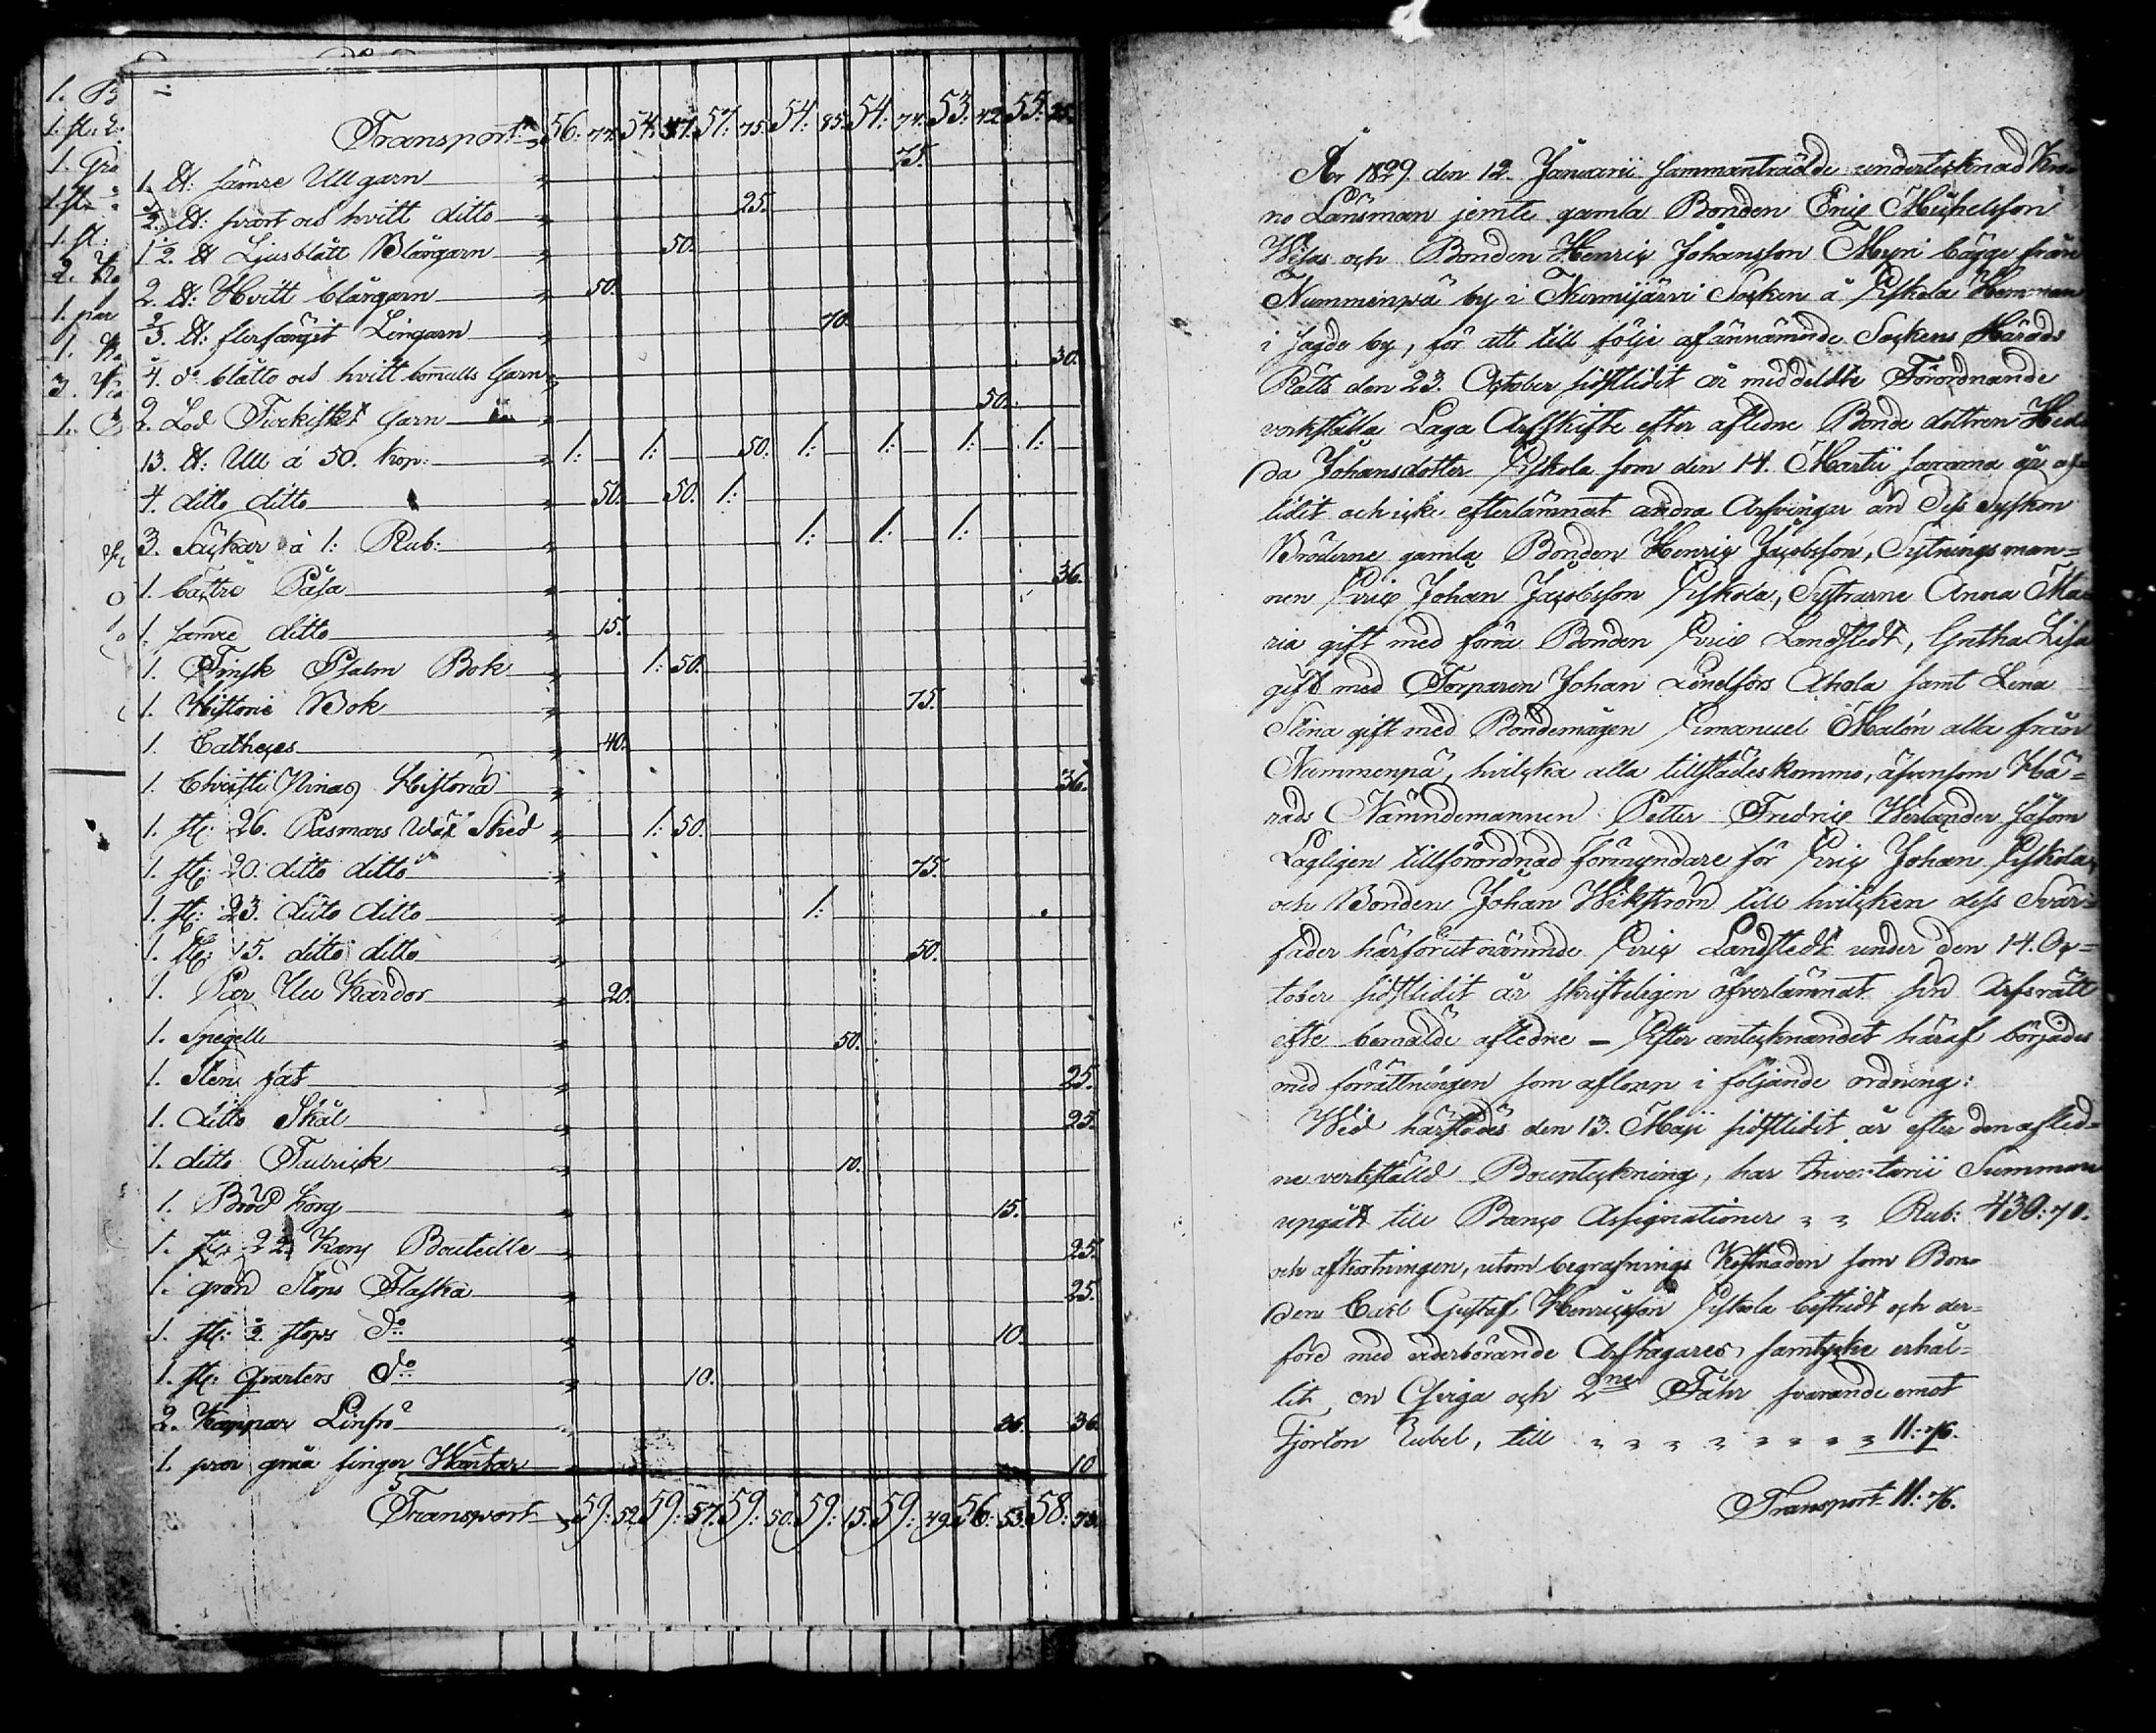 Transport 56: 74. 54: 47. 57: 75. 54: 85. 54: 74. 53: 42. 55: 25.
1. ℔: sämre Ullgarn 75.
℔: svart och hvitt ditto 25.
1½. ℔ Ljusblått Blångarn 50.
2. ℔: Hvitt blårgarn 50.
⅔. ℔: Lingarn 70.
4. do blåtto och hvitt bomulls Garn 30.
2. Lod Turkiskt Garn 50.
13. ℔: Ull á 50. kop: 1: 1: 50. 1: 1: 1: 1:
4. ditto ditto 50. 50. 1:
3. Säckar á 1: Rub: 1: 1: 1:
1. bättre Påsa 36.
1. sämre ditto 15.
1. Finsk Psalm Bok 1: 50.
1. Historie Bok 75.
1. Catheches 40.
1. Christi Pinas Historia 36.
1. st: 26. Pasmars Wäf Sked 1: 50.
1. st: 20. ditto ditto 75.
1. st: 23. ditto ditto 1:
1. st: 15. ditto ditto 50.
1. Par Ull Kardor 20.
1. Spegell 50.
1. Sten fat 25.
1. ditto Skål 25.
1. ditto Tallrick 10.
1. Bröd Korg 15.
1. st: 2 Kans Bouteille 25.
1. grön Stops Flaska 25.
1. st: ½ stops Do 10.
1. st: qvarters Do 10.
2. Kappar Linfrö 36. 36.
1. par gråa finger Wantar 10
Transport 59: 52. 59: 57. 59: 50. 59: 15. 59: 49. 56: 53. 58: 73.
År 1829. den 12. Januarii sammanträdde undertecknad Kro-
no Länsman jemte gamla Bonden Eric Michelsson
Wiias och Bonden Henric Johansson Myri bägge från
Nummenpä by i Nurmijärvi Socken å Eskola Hemman
i sagde by, för att till följe af ännämnde Sockens Härads
Rätts den 23. October sistlidit år meddeldte Förordnande
verkställa Laga Arfskifte efter aflidne Bonde dottren Hed-
da Johansdotter Eskola som den 14. Martii samma år af-
lidit och icke efterlämnat andra Arfvingar än dess Syskon
Bröderne gamla Bonden Henric Jacobsson, Sytningsman-
nen Eric Johan Jacobsson Eskola, Systrarne Anna Ma-
ria gift med förra Bonden Eric Landstedt, Gretha Lisa
gift med Torparen Johan Lindfors Ahola samt Lena
Stina gift med Bondemågen Emanuel Malén alla från
Nummenpä, hvilcka alla tillstädeskommo, äfvensom Hä-
rads Nämndemannen Petter Fredric Werlander såsom
Lagligen tillförordnad förmyndare för Eric Johan Eskola,
och Bonden Johan Wikström till hvilcken dess Svär-
fader härförutnämnde Eric Landstedt under den 14. Oc-
tober sistlidit år skrifteligen öfverlämnat sin Arfsrätt
efte bemälde aflidne – Efter antecknandet häraf börjades
med förrättningen som aflopp i följande ordning:
Wid härstädes den 13. Maji sistlidit år efter den aflid-
ne verkställd Bouptekning, har Inventarii Summan
upgått till Banco Assignationer " " Rub: 430: 70.
och afkortningen, utom begrafnings Kostnaden som Bon-
den Carl Gustaf Henricsson Eskola bestridt och der-
före med vederbörande Arftagares samtycke erhål-
lit en Qviga och 2ne Fåhr svarande emot
Fjorton Rubel, till " " " " " " " " 11: 76.
Transport 11: 76.